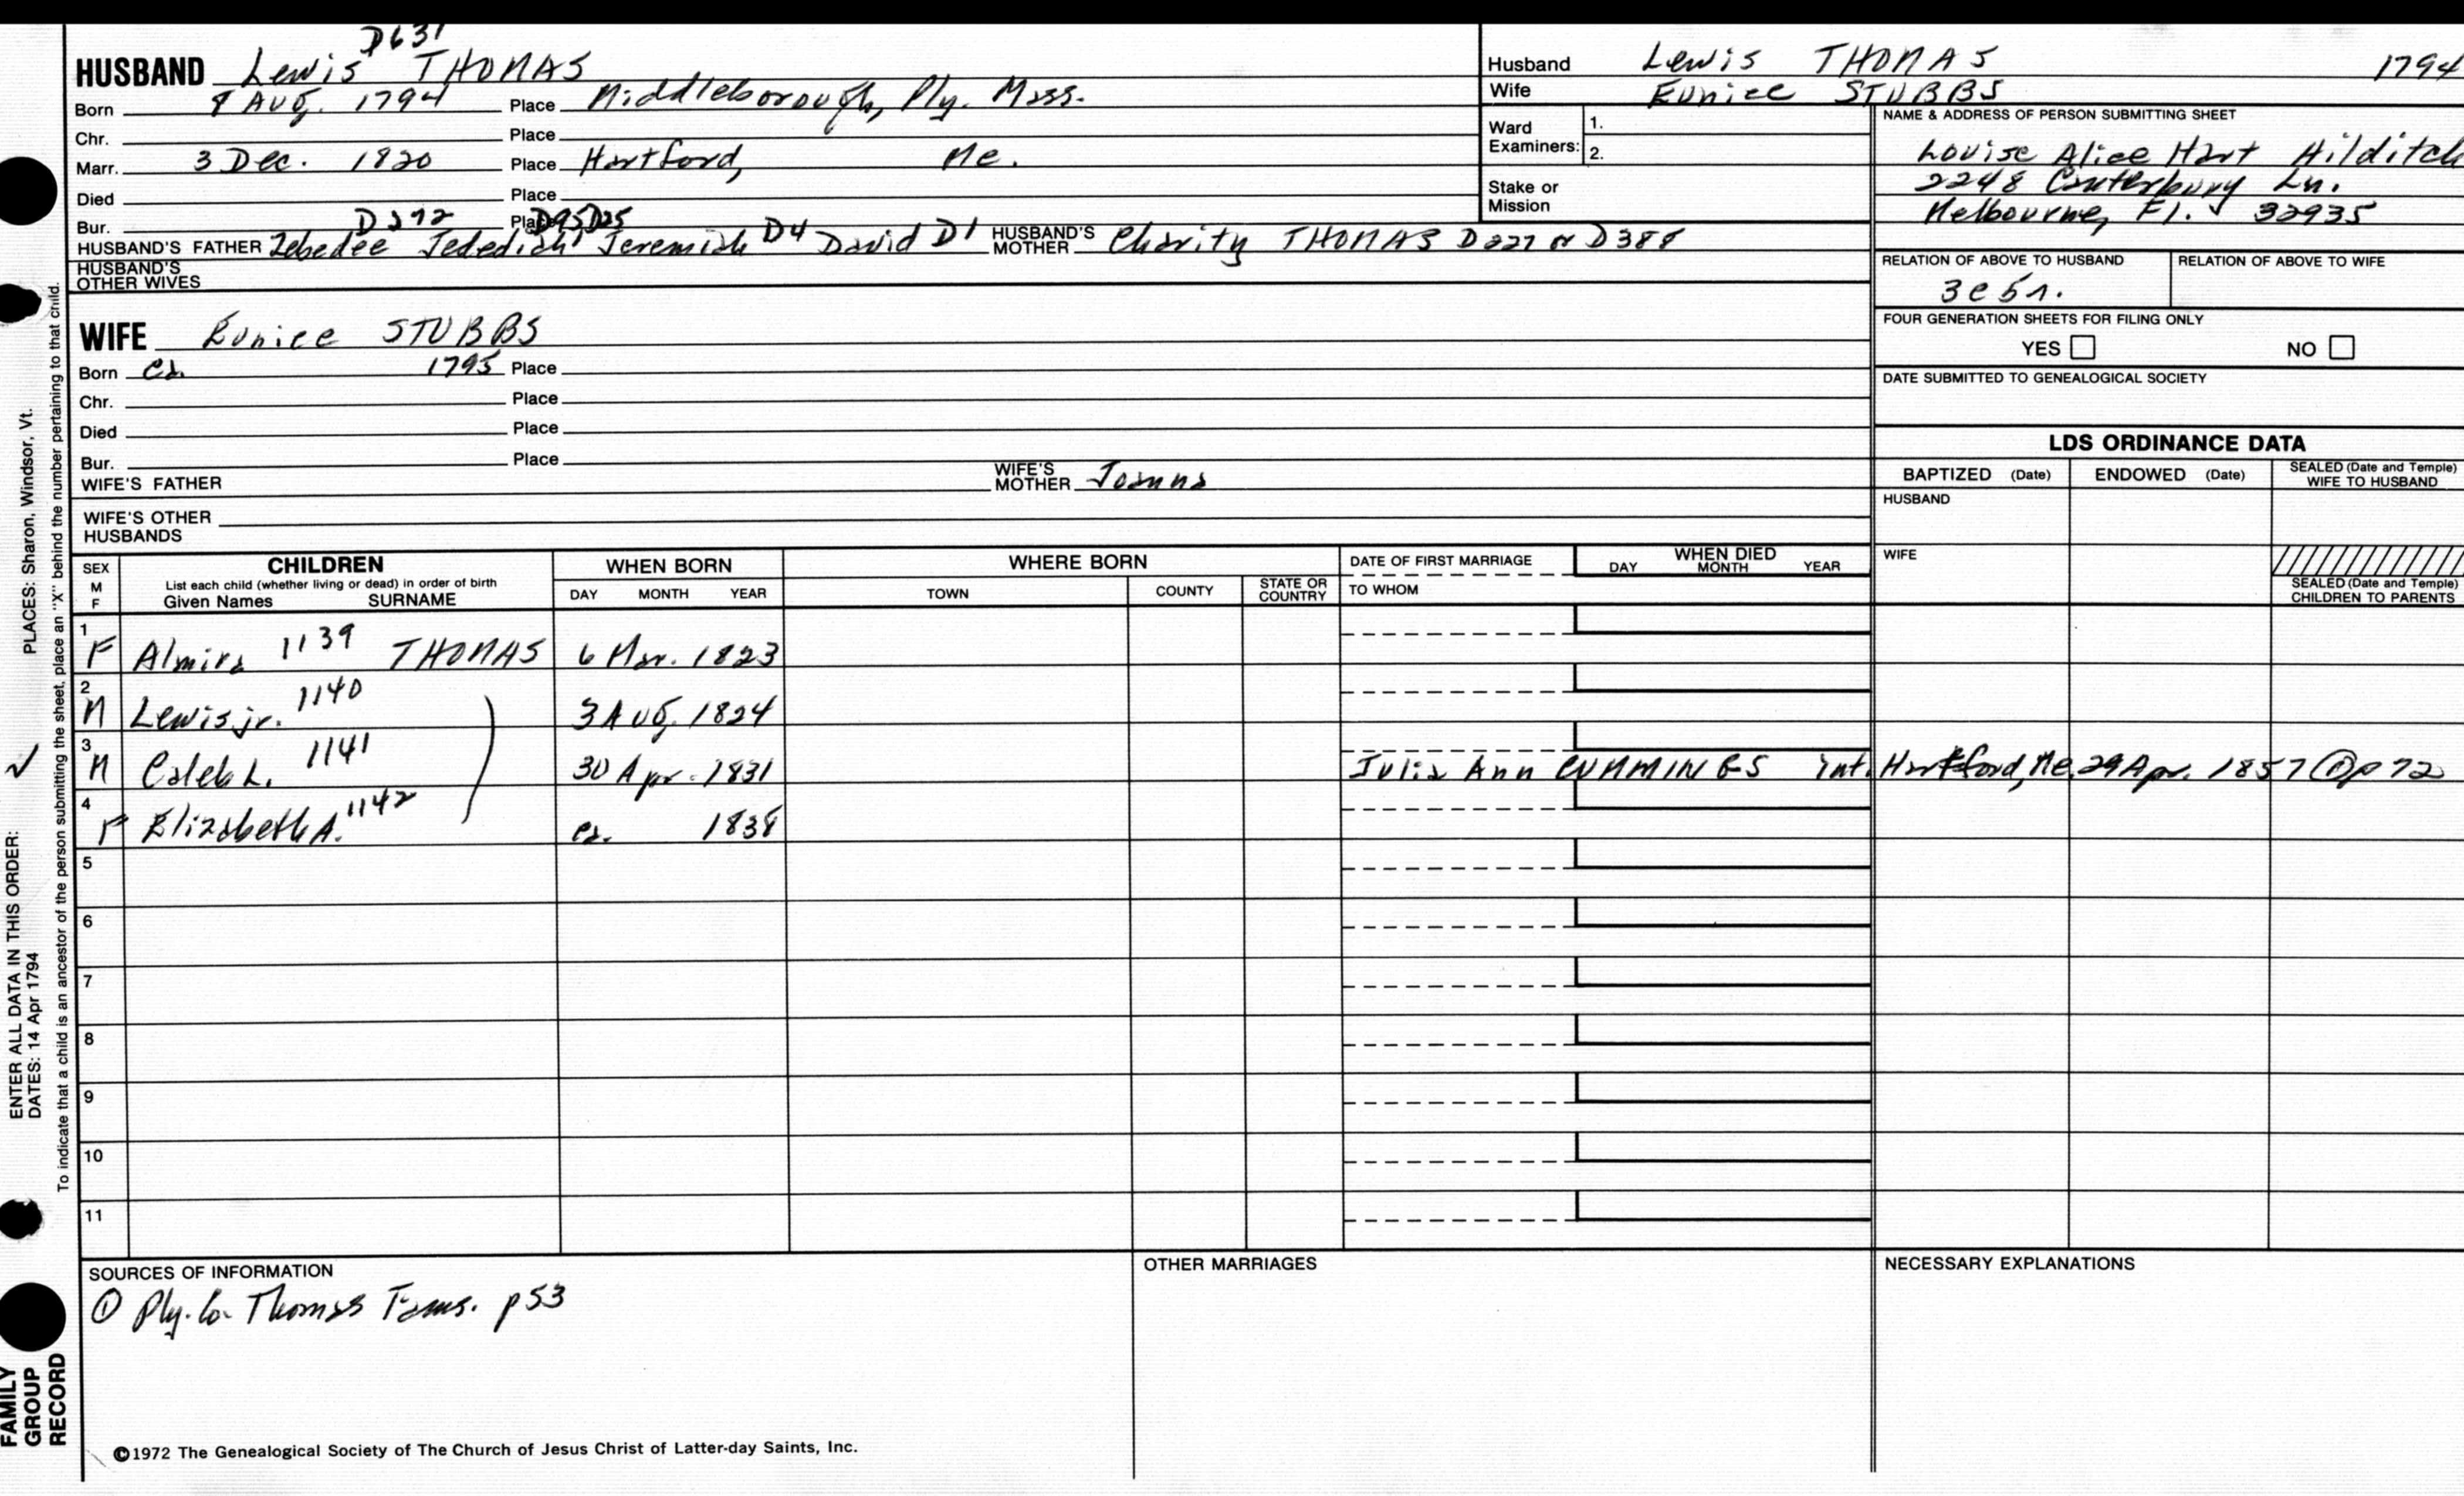 D631
HUSBAND Lewis THOMAS
Born 8 Aug. 1794 Place Middleborough, Ply. Mass.
Chr. Place
Marr. 3 Dec. 1820 Place Hartford, Me.
Died Place
Bur. Place
D95 D25
HUSBAND'S FATHER Zebedee Jedediah Jeremiah D4 David D1 HUSBAND'S MOTHER Charity THOMAS D227 or D388
HUSBAND'S OTHER WIVES
Husband Lewis THOMAS 1794
Wife Eunice STUBBS
Ward Examiners: 1.
2.
Stake or Mission
NAME & ADDRESS OF PERSON SUBMITTING SHEET
Louise Alice Hart Hilditch
2248 Canterbury Ln.
Melbourne, Fl. 32935
RELATION OF ABOVE TO HUSBAND RELATION OF ABOVE TO WIFE
3c5r.
FOUR GENERATION SHEETS FOR FILING ONLY
YES NO
DATE SUBMITTED TO GENEALOGICAL SOCIETY
WIFE Eunice STUBBS
Born ca 1795 Place
Chr. Place
Died Place
Bur. Place
WIFE'S FATHER WIFE'S MOTHER Joanna
WIFE'S OTHER HUSBANDS
LDS ORDINANCE DATA
BAPTIZED (Date) ENDOWED (Date) SEALED (Date and Temple) WIFE TO HUSBAND
HUSBAND
WIFE
SEALED (Date and Temple) CHILDREN TO PARENTS
SEX M F CHILDREN WHEN BORN WHERE BORN DATE OF FIRST MARRIAGE WHEN DIED
List each child (whether living or dead) in order of birth
Given Names SURNAME DAY MONTH YEAR TOWN COUNTY STATE OR COUNTRY TO WHOM DAY MONTH YEAR
1 F Almira 1139 THOMAS 6 Mar. 1823
2 M Lewis jr. 1140 3 Aug. 1824
3 M Caleb L. 1141 30 Apr. 1831 Julia Ann CUMMINGS int. Hartford, Me. 29 Apr. 1857 @p 72
4 F Elizabeth A. 1142 ca. 1838
5
6
7
8
9
10
11
SOURCES OF INFORMATION
① Ply. Co. Thomas Fams. p53
OTHER MARRIAGES
NECESSARY EXPLANATIONS
©1972 The Genealogical Society of The Church of Jesus Christ of Latter-day Saints, Inc.
FAMILY GROUP RECORD
ENTER ALL DATA IN THIS ORDER:
DATES: 14 Apr 1794 PLACES: Sharon, Windsor, Vt.
To indicate that a child is an ancestor of the person submitting the sheet, place an "X" behind the number pertaining to that child.